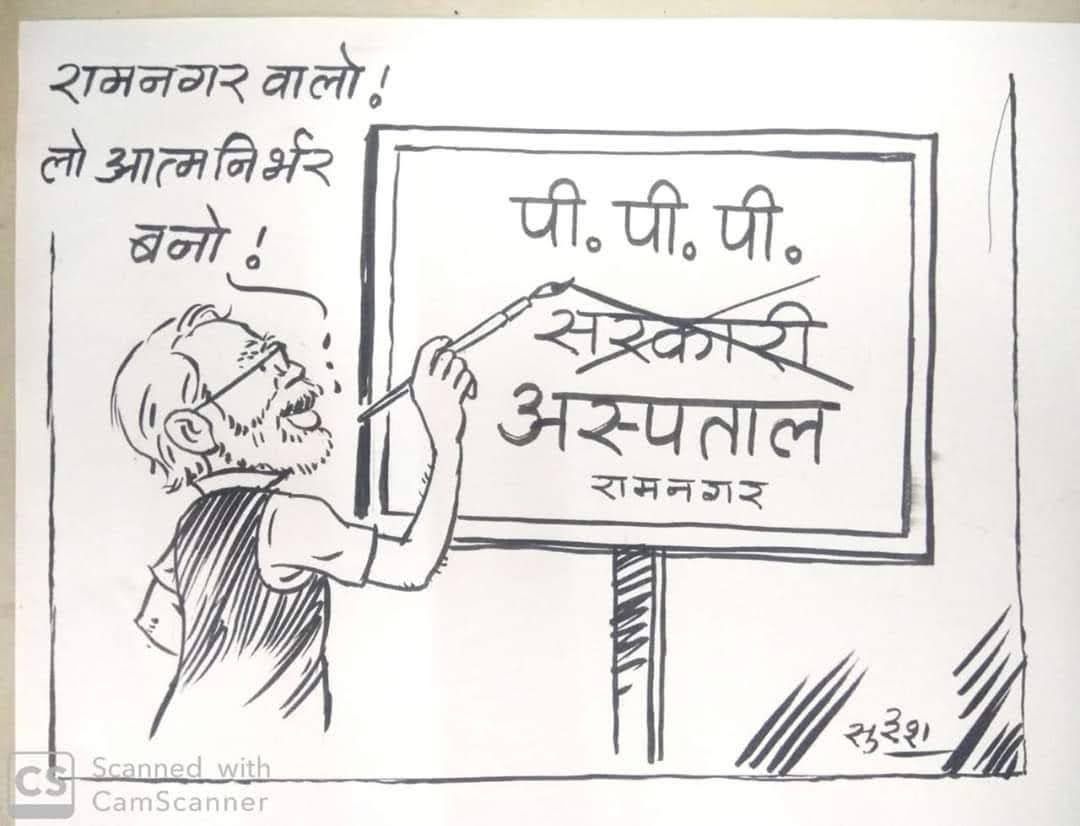 रामनगर वालो!
लो आत्मनिर्भर
बनो!
पी. पी. पी.
सरकारी
अस्पताल
रामनगर
सुरेश
CS Scanned with
CamScanner